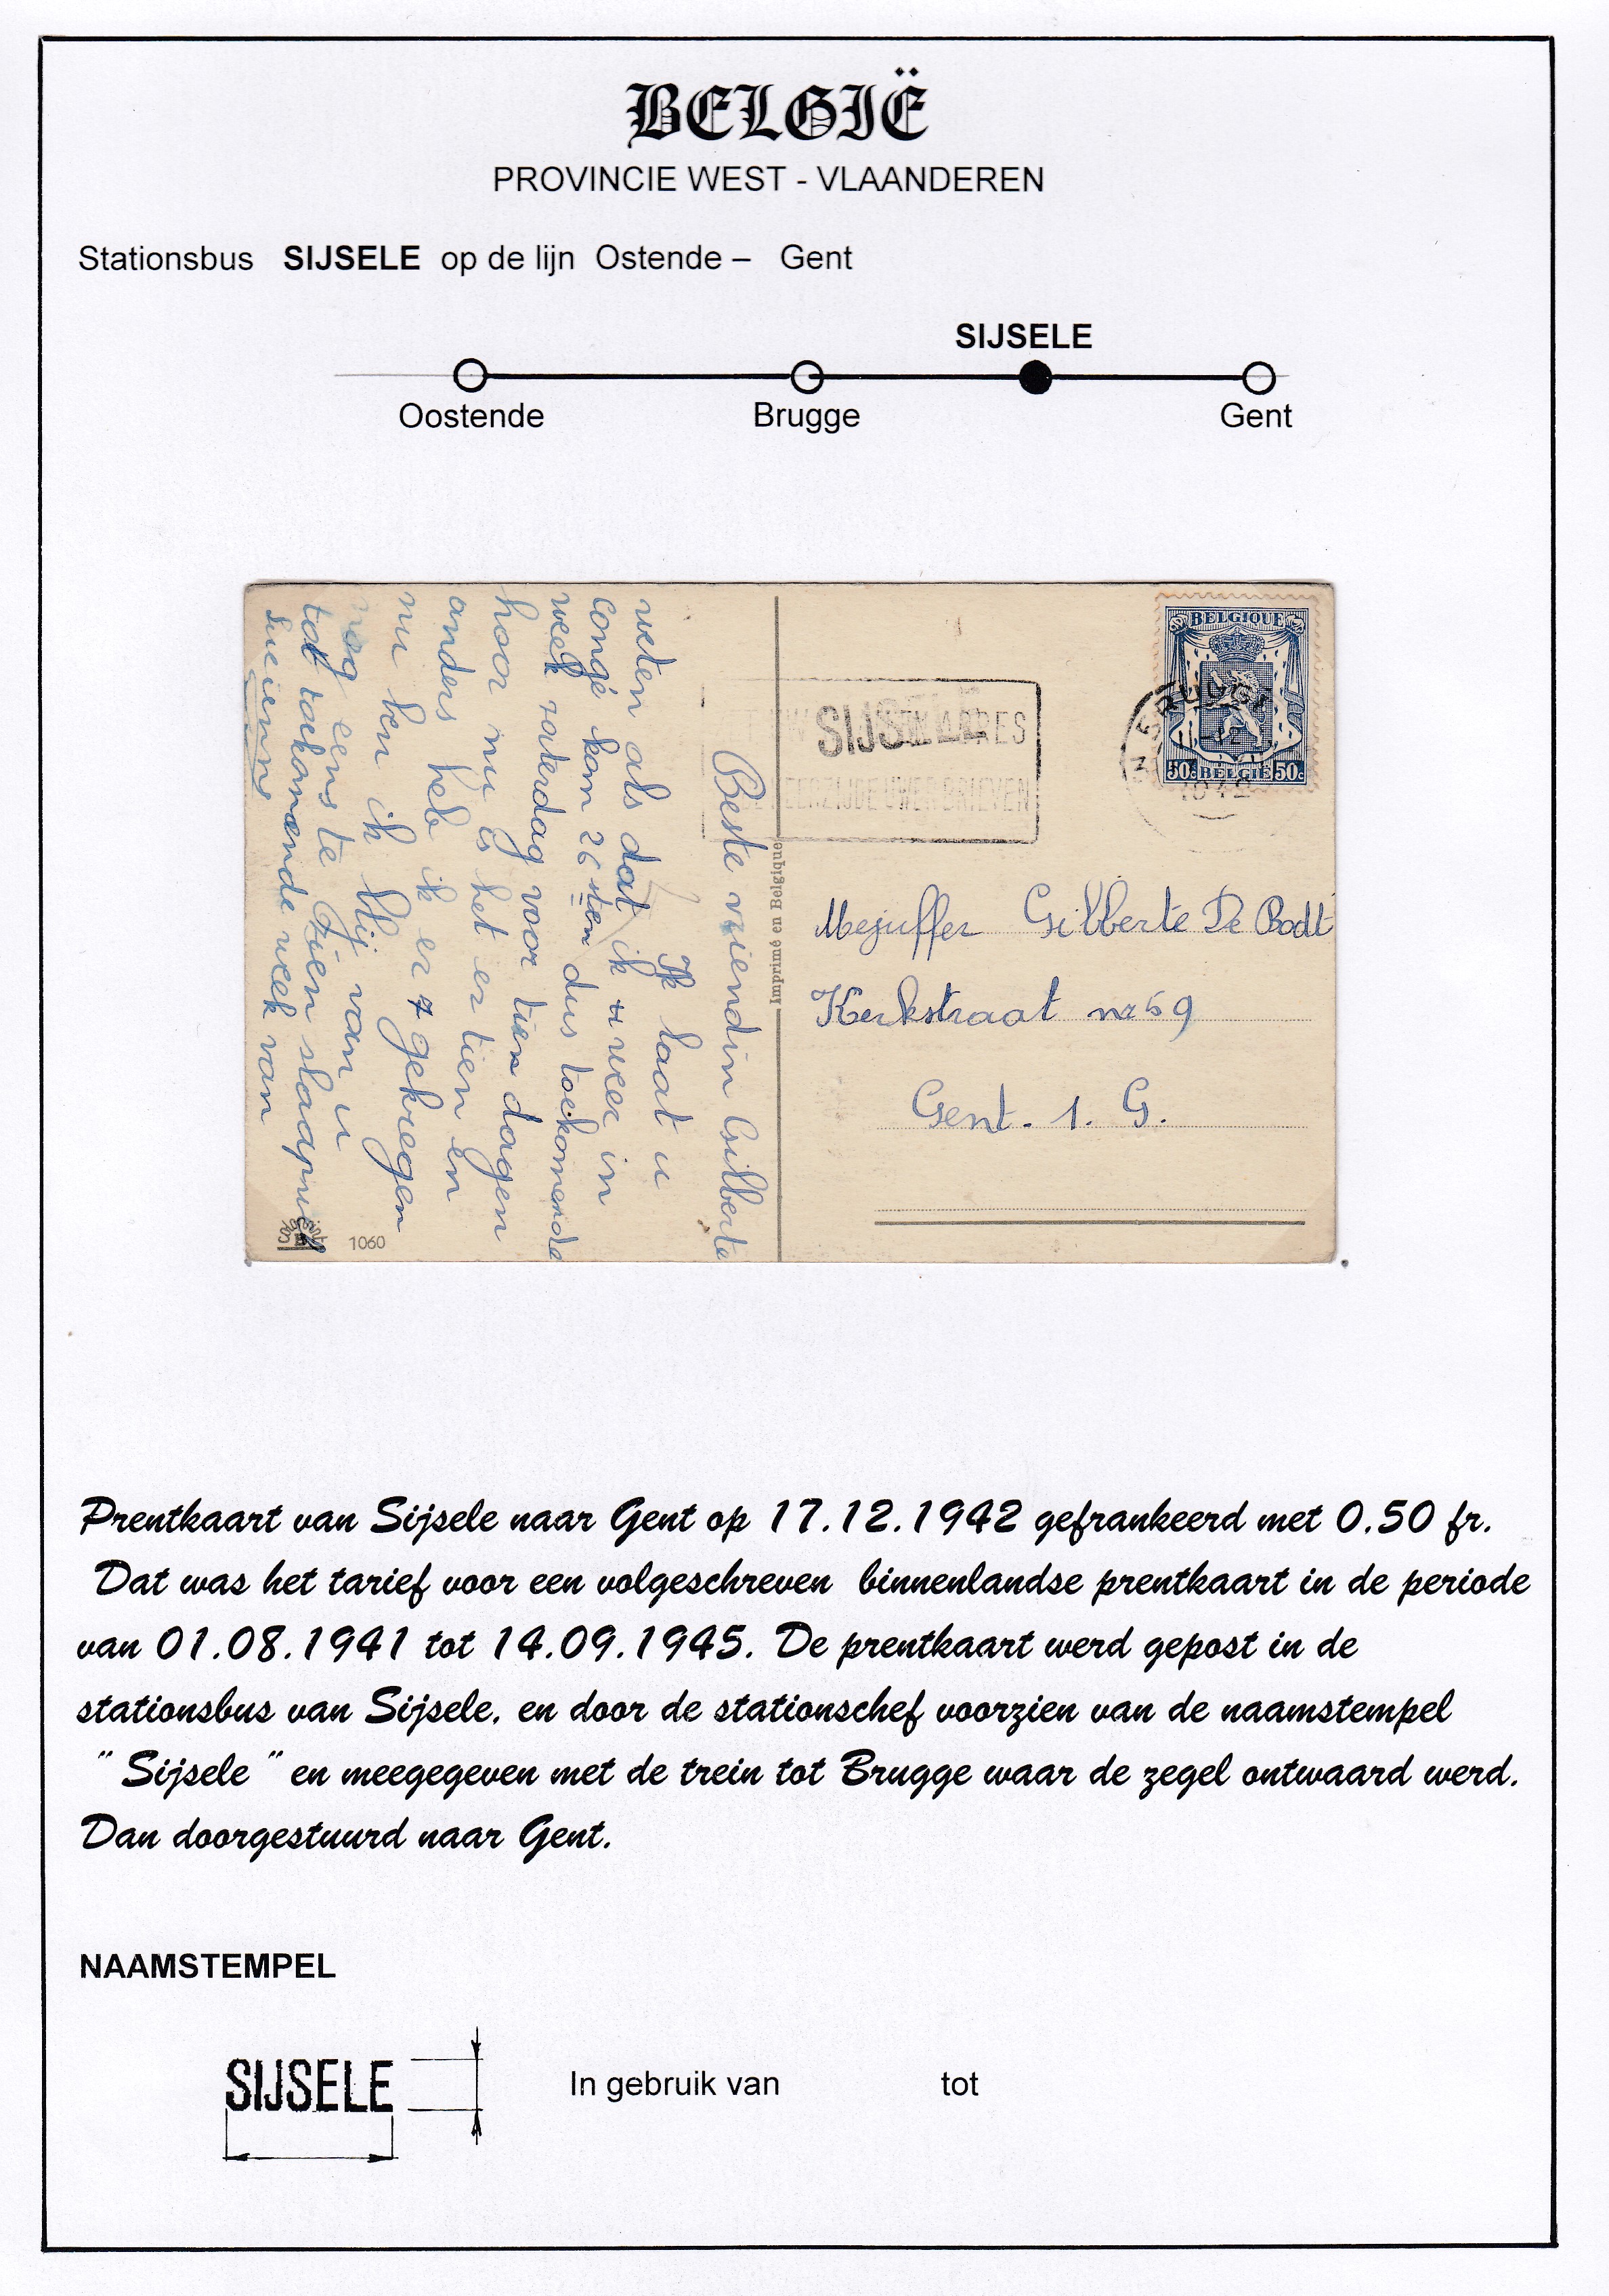 BELGIË
PROVINCIE WEST - VLAANDEREN
Stationsbus SIJSELE op de lijn Ostende – Gent
SIJSELE
Oostende Brugge Gent
BELGIQUE
50c BELGIË 50c
BRUGGE
SIJSELE
EERZIJDE UWER BRIEVEN
Imprimé en Belgique
Mejuffer Gilberte De Bodt
Kerkstraat nr 69
Gent. 1. G.
Beste vriendin Gilberte
Ik laat u
weten als dat ik weer in
congé kom 26 sten dus toekomende
week zaterdag voor tien dagen
hoor nu is het er tien en
anders heb ik er 7 gekregen
nu ben ik blij van u
nog eens te zien slaapwel
tot toekomende week van
1060
Prentkaart van Sijsele naar Gent op 17.12.1942 gefrankeerd met 0.50 fr.
Dat was het tarief voor een volgeschreven binnenlandse prentkaart in de periode
van 01.08.1941 tot 14.09.1945. De prentkaart werd gepost in de
stationsbus van Sijsele, en door de stationschef voorzien van de naamstempel
" Sijsele " en meegegeven met de trein tot Brugge waar de zegel ontwaard werd.
Dan doorgestuurd naar Gent.
NAAMSTEMPEL
SIJSELE In gebruik van tot